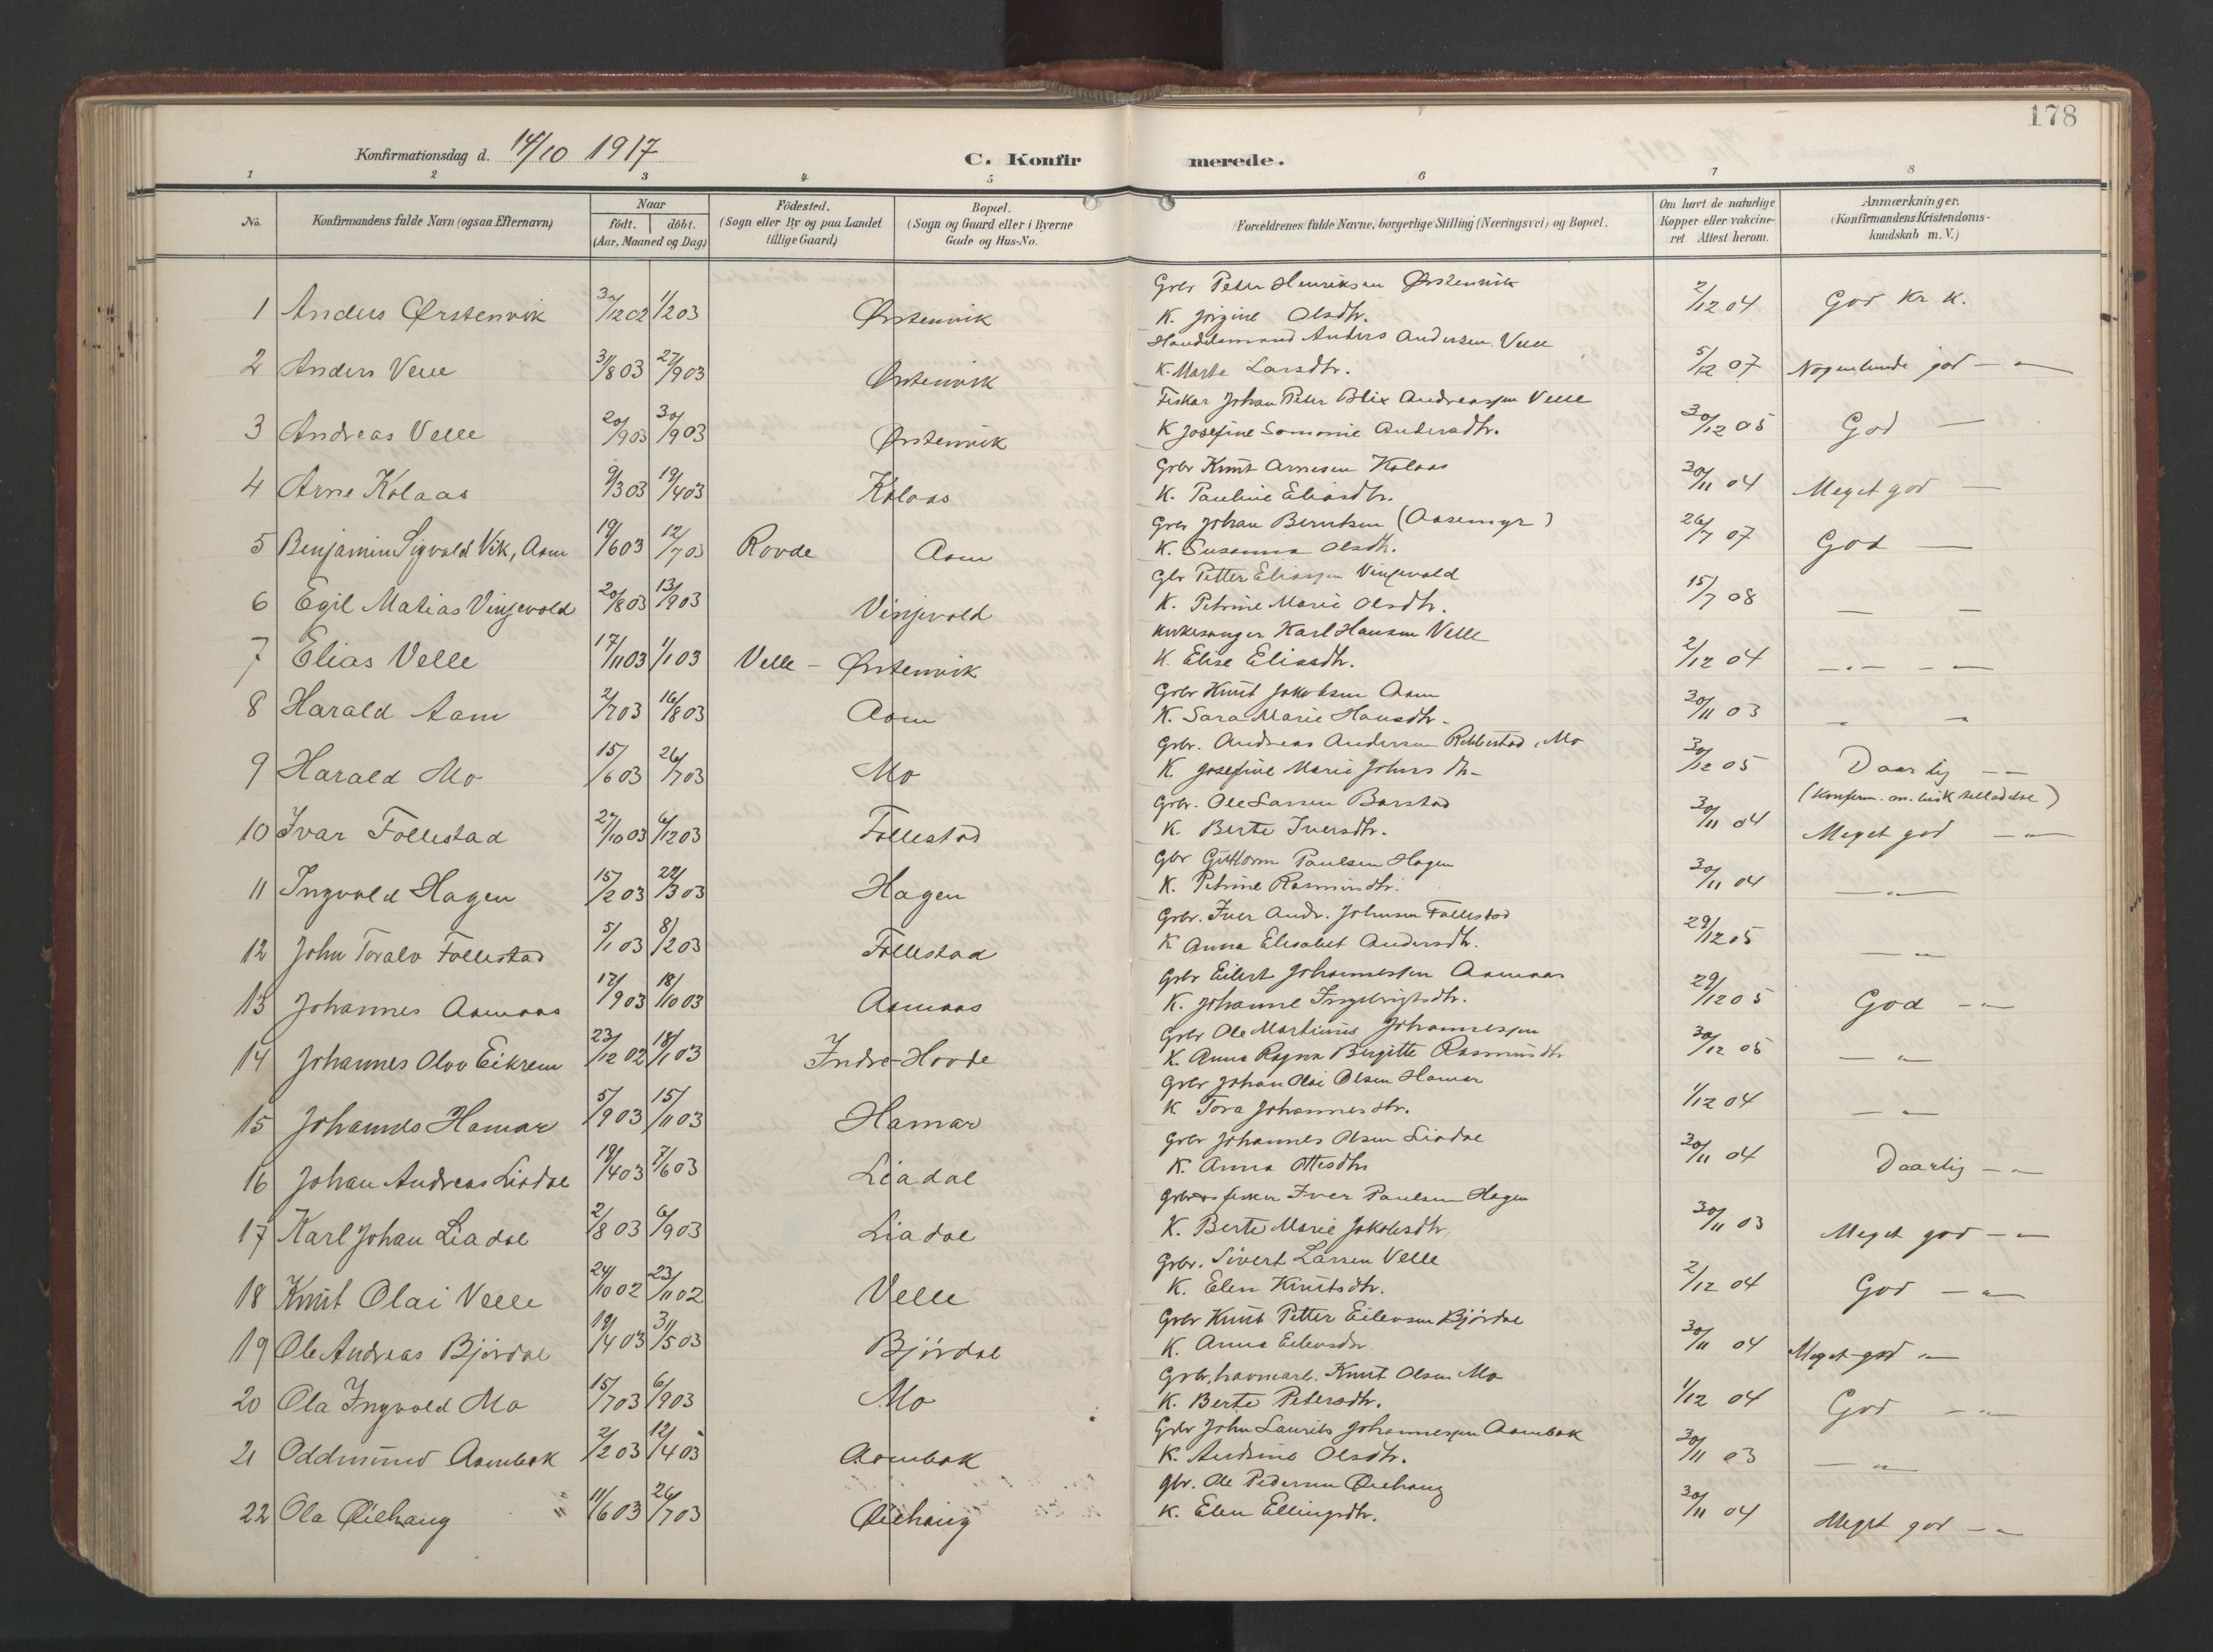 178
Konfirmationsdag d. 14/10 1917
C. Konfirmerede.
1 2 3 4 5 6 7 8
No.
Konfirmandens fulde Navn (ogsaa Efternavn)
Naar
födt. döbt.
(Aar, Maaned og Dag)
Födested.
(Sogn eller By og paa Landet
tillige Gaard)
Bopæl.
(Sogn og Gaard eller i Byerne
Gade og Hus-No.
Forældrenes fulde Navne, borgerlige Stilling (Næringsvei) og Bopæl.
Om havt de naturlige
Kopper eller vakcine-
ret Attest herom.
Anmærkninger.
(Konfirmandens Kristendoms-
kundskab m. V.)
Grbr Peter Henriksen Ørstenvik
1 Anders Ørstenvik 30/12 02 1/2 03 Ørstenvik K. Jörgine Olsdtr. 2/12 04 God Kr. K.
Handelsmand Anders Andersen Velle
2 Anders Velle 31/8 03 27/9 03 Ørstenvik K. Marte Larsdtr. 5/12 07 Nogenlunde god — " —
Fisker Johan Peter Blix Andreassen Velle
3 Andreas Velle 20/9 03 30/9 03 Ørstenvik K Josefine Andersdtr. 30/12 05 God —
Grbr Knut Arnesen Kolaas
4 Arne Kolaas 9/3 03 19/4 03 Kolaas K. Pauline Eliasdtr. 30/11 04 Meget god —
Grbr Johan Berntsen (Aasemyr)
5 Benjamin Sigvald Vik, Aam 19/6 03 12/7 03 Rovde Aam K. Susanna Olsdtr. 26/7 07 God —
Gbr Petter Eliassen Vinjevold
6 Egil Matias Vinjevold 20/8 03 13/9 03 Vinjevold K. Petrine Marie Olsdtr. 15/7 08 — —
Kirkesanger Karl Hansen Velle
7 Elias Velle 17/11 03 1/1 03 Velle - Ørstenvik K. Elise Eliasdtr. 2/12 04 — " — — —
Grbr Knut Jakobsen Aam
8 Harald Aam 2/7 03 16/8 03 Aam K. Sara Marie Hansdtr. 30/11 03 " "
Grbr. Andreas Andersen Rebbestad, Mo
9 Harald Mo 15/6 03 26/7 03 Mo K. Josefine Marie Johnsdtr. 30/12 05 Daarlig — —
(Konfirm. m. bisk. tilladelse)
Grbr. Ole Larsen Barstad
10 Ivar Follestad 27/10 03 6/12 03 Follestad K. Berte Iversdtr. 30/11 04 Meget god — " —
Gbr Guttorm Paulsen Hagen
11 Ingvald Hagen 15/2 03 22/3 03 Hagen K. Petrine Rasmusdtr. 30/11 04 — " —
Grbr. Iver Andr. Johnsen Follestad
12 John Toralv Follestad 5/1 03 8/2 03 Follestad K Anna Elisabet Andersdtr. 29/12 05 — " —
Grbr Eilert Johannessen Aamaas
13 Johannes Aamaas 17/9 03 18/10 03 Aamaas K. Johanne Ingebrigtsdtr. 29/12 05 God — " —
Grbr Ole Martinus Johannessen
14 Johannes Olav Eikrem 23/12 02 18/1 03 Indre-Hovde K. Anna Ragna Birgitte Rasmusdtr 30/12 05 — " —
Grbr Johan Olai Olsen Hamar
15 Johannes Hamar 5/9 03 15/11 03 Hamar K Tora Johannesdtr. 1/12 04 — " —
Grbr Johannes Olsen Liadal
16 Johan Andreas Liadal 19/4 03 7/6 03 Liadal K. Anna Ottesdtr 30/11 04 Daarlig — " —
Grbr og fisker Iver Paulsen Hagen
17 Karl Johan Liadal 2/8 03 6/9 03 Liadal K. Berte Marie Jakobsdtr. 30/11 03 Meget god — " —
Grbr. Sivert Larsen Velle
18 Knut Olai Velle 24/10 02 23/11 02 Velle K. Elen Knutsdtr. 2/12 04 God — " —
Grbr Knut Petter Eilevsen Björdal
19 Ole Andreas Björdal 19/4 03 31/5 03 Björdal K. Anna Eilevsdtr 30/11 04 Meget god " —
Grbr, havnearb. Knut Olsen Mo
20 Ola Ingvald Mo 15/7 03 6/9 03 Mo K. Berte Petersdtr. 1/12 04 God — " —
Grbr John Laurits Johannessen Aambak
21 Oddmund Aambak 2/2 03 12/4 03 Aambak K. Andrine Olsdtr. 30/11 03 — " —
gbr. Ole Pedersen Øiehaug
22 Ola Øiehaug 11/6 03 26/7 03 Øiehaug K. Elen Ellingsdtr. 30/11 04 Meget god — " —